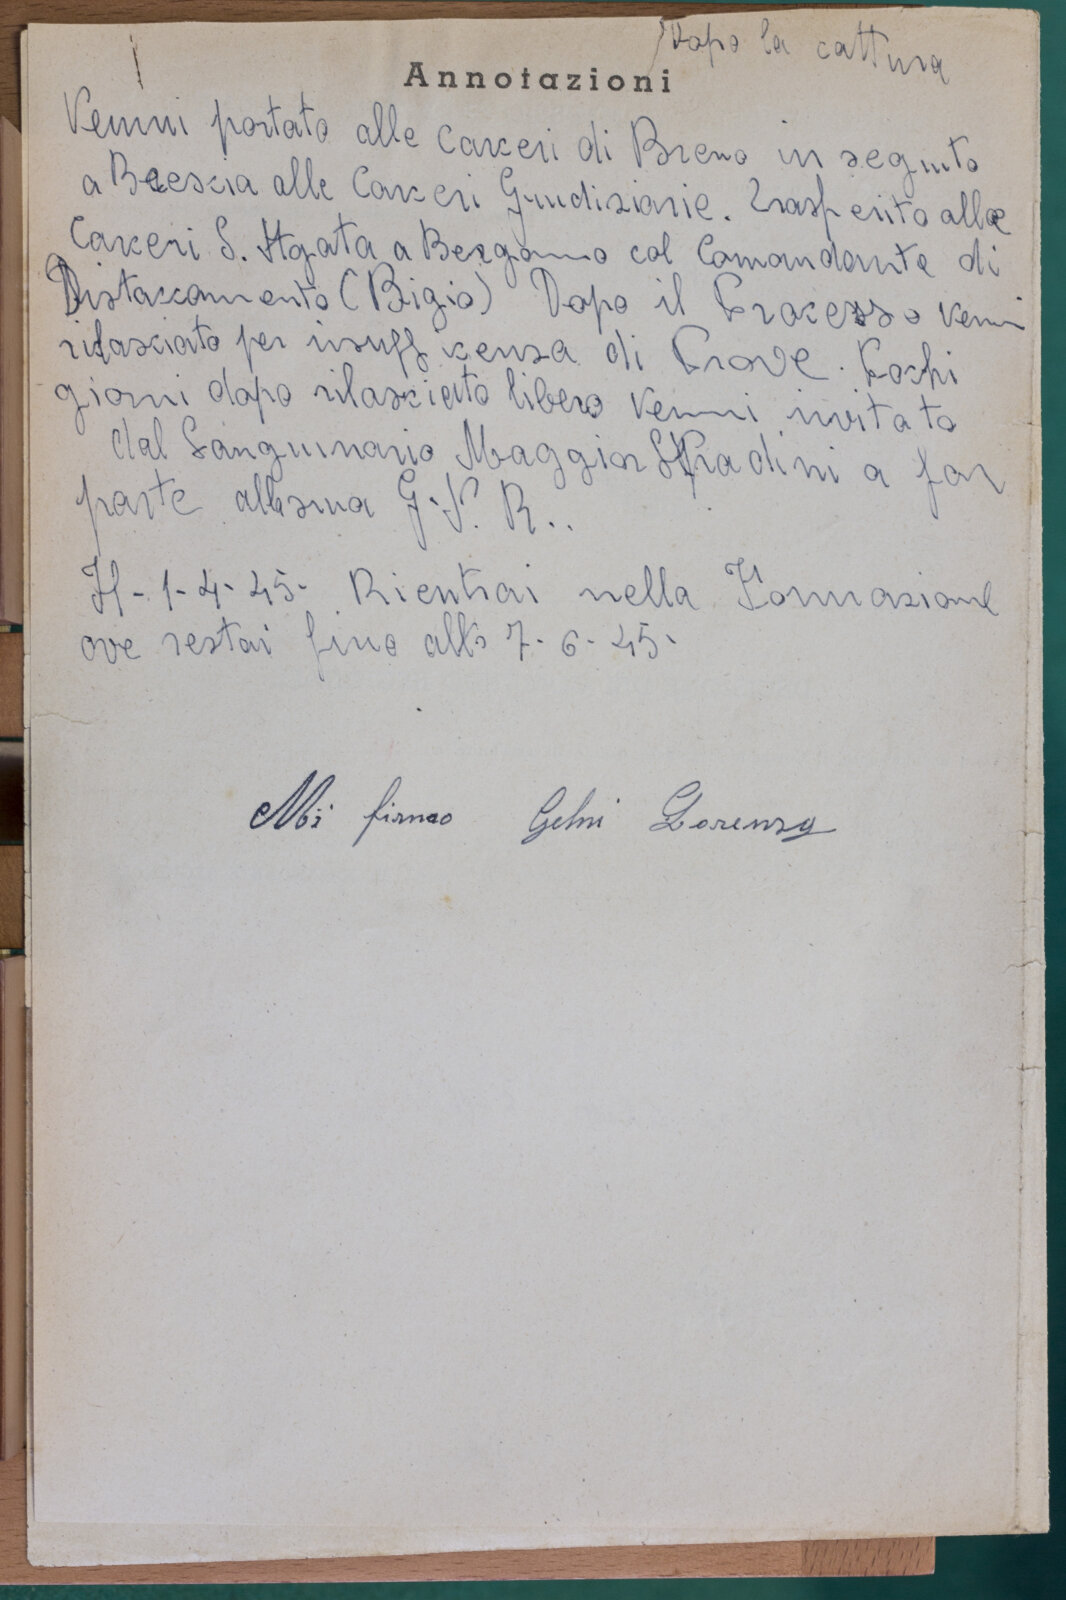 Dopo la cattura
Annotazioni
Venni portato alle Carceri di Breno in seguito
a Brescia alle Carceri Giudiziarie. Trasferito alle
Carceri S. Agata a Bergamo col Comandante di
Distaccamento (Bigio) Dopo il Processo venni
rilasciato per insufficenza di Prove. Pochi
giorni dopo rilasciato libero venni invitato
dal Sanguinario Maggior Spadini a far
parte all sua G.N.R..
Il - 1-4-45- Rientrai nella Formazione
ove restai fino alla 7-6-45-
Mi firmo Gelmi Lorenzo